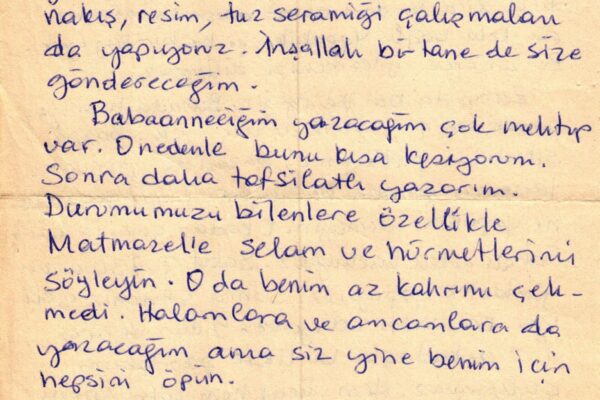 nakış, resim, tuz seramiği çalışmaları
da yapıyoruz. İnşallah bir tane de size
göndereceğim.
Babaanneciğim yazacağım çok mektup
var. O nedenle bunu kısa kesiyorum.
Sonra daha tafsilatlı yazarım.
Durumumuzu bilenlere özellikle
Matmazel'e selam ve hürmetlerimi
söyleyin. O da benim az kahrımı çek-
medi. Halamlara ve amcamlara da
yazacağım ama siz yine benim için
hepsini öpün.